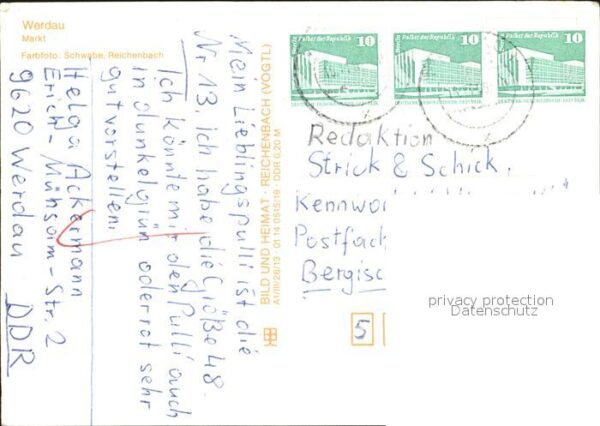 Werdau
Markt
Farbfoto: Schwabe, Reichenbach
Mein Lieblingspulli ist die
Nr 13. Ich habe die Größe 48.
Ich könnte mir den Pulli auch
in dunkelgrün oder rot sehr
gut vorstellen.
Helga Ackermann
Erich-Mühsam-Str. 2
9620 Werdau DDR
BILD UND HEIMAT · REICHENBACH (VOGTL)
A1/III/26/13 · 01 14 0515/19 · DDR 0,20 M
10 Palast der Republik
10 Palast der Republik
10 Palast der Republik
Redaktion
Strick & Schick,
Kennwo
Postfach
Bergisc
5
privacy protection
Datenschutz